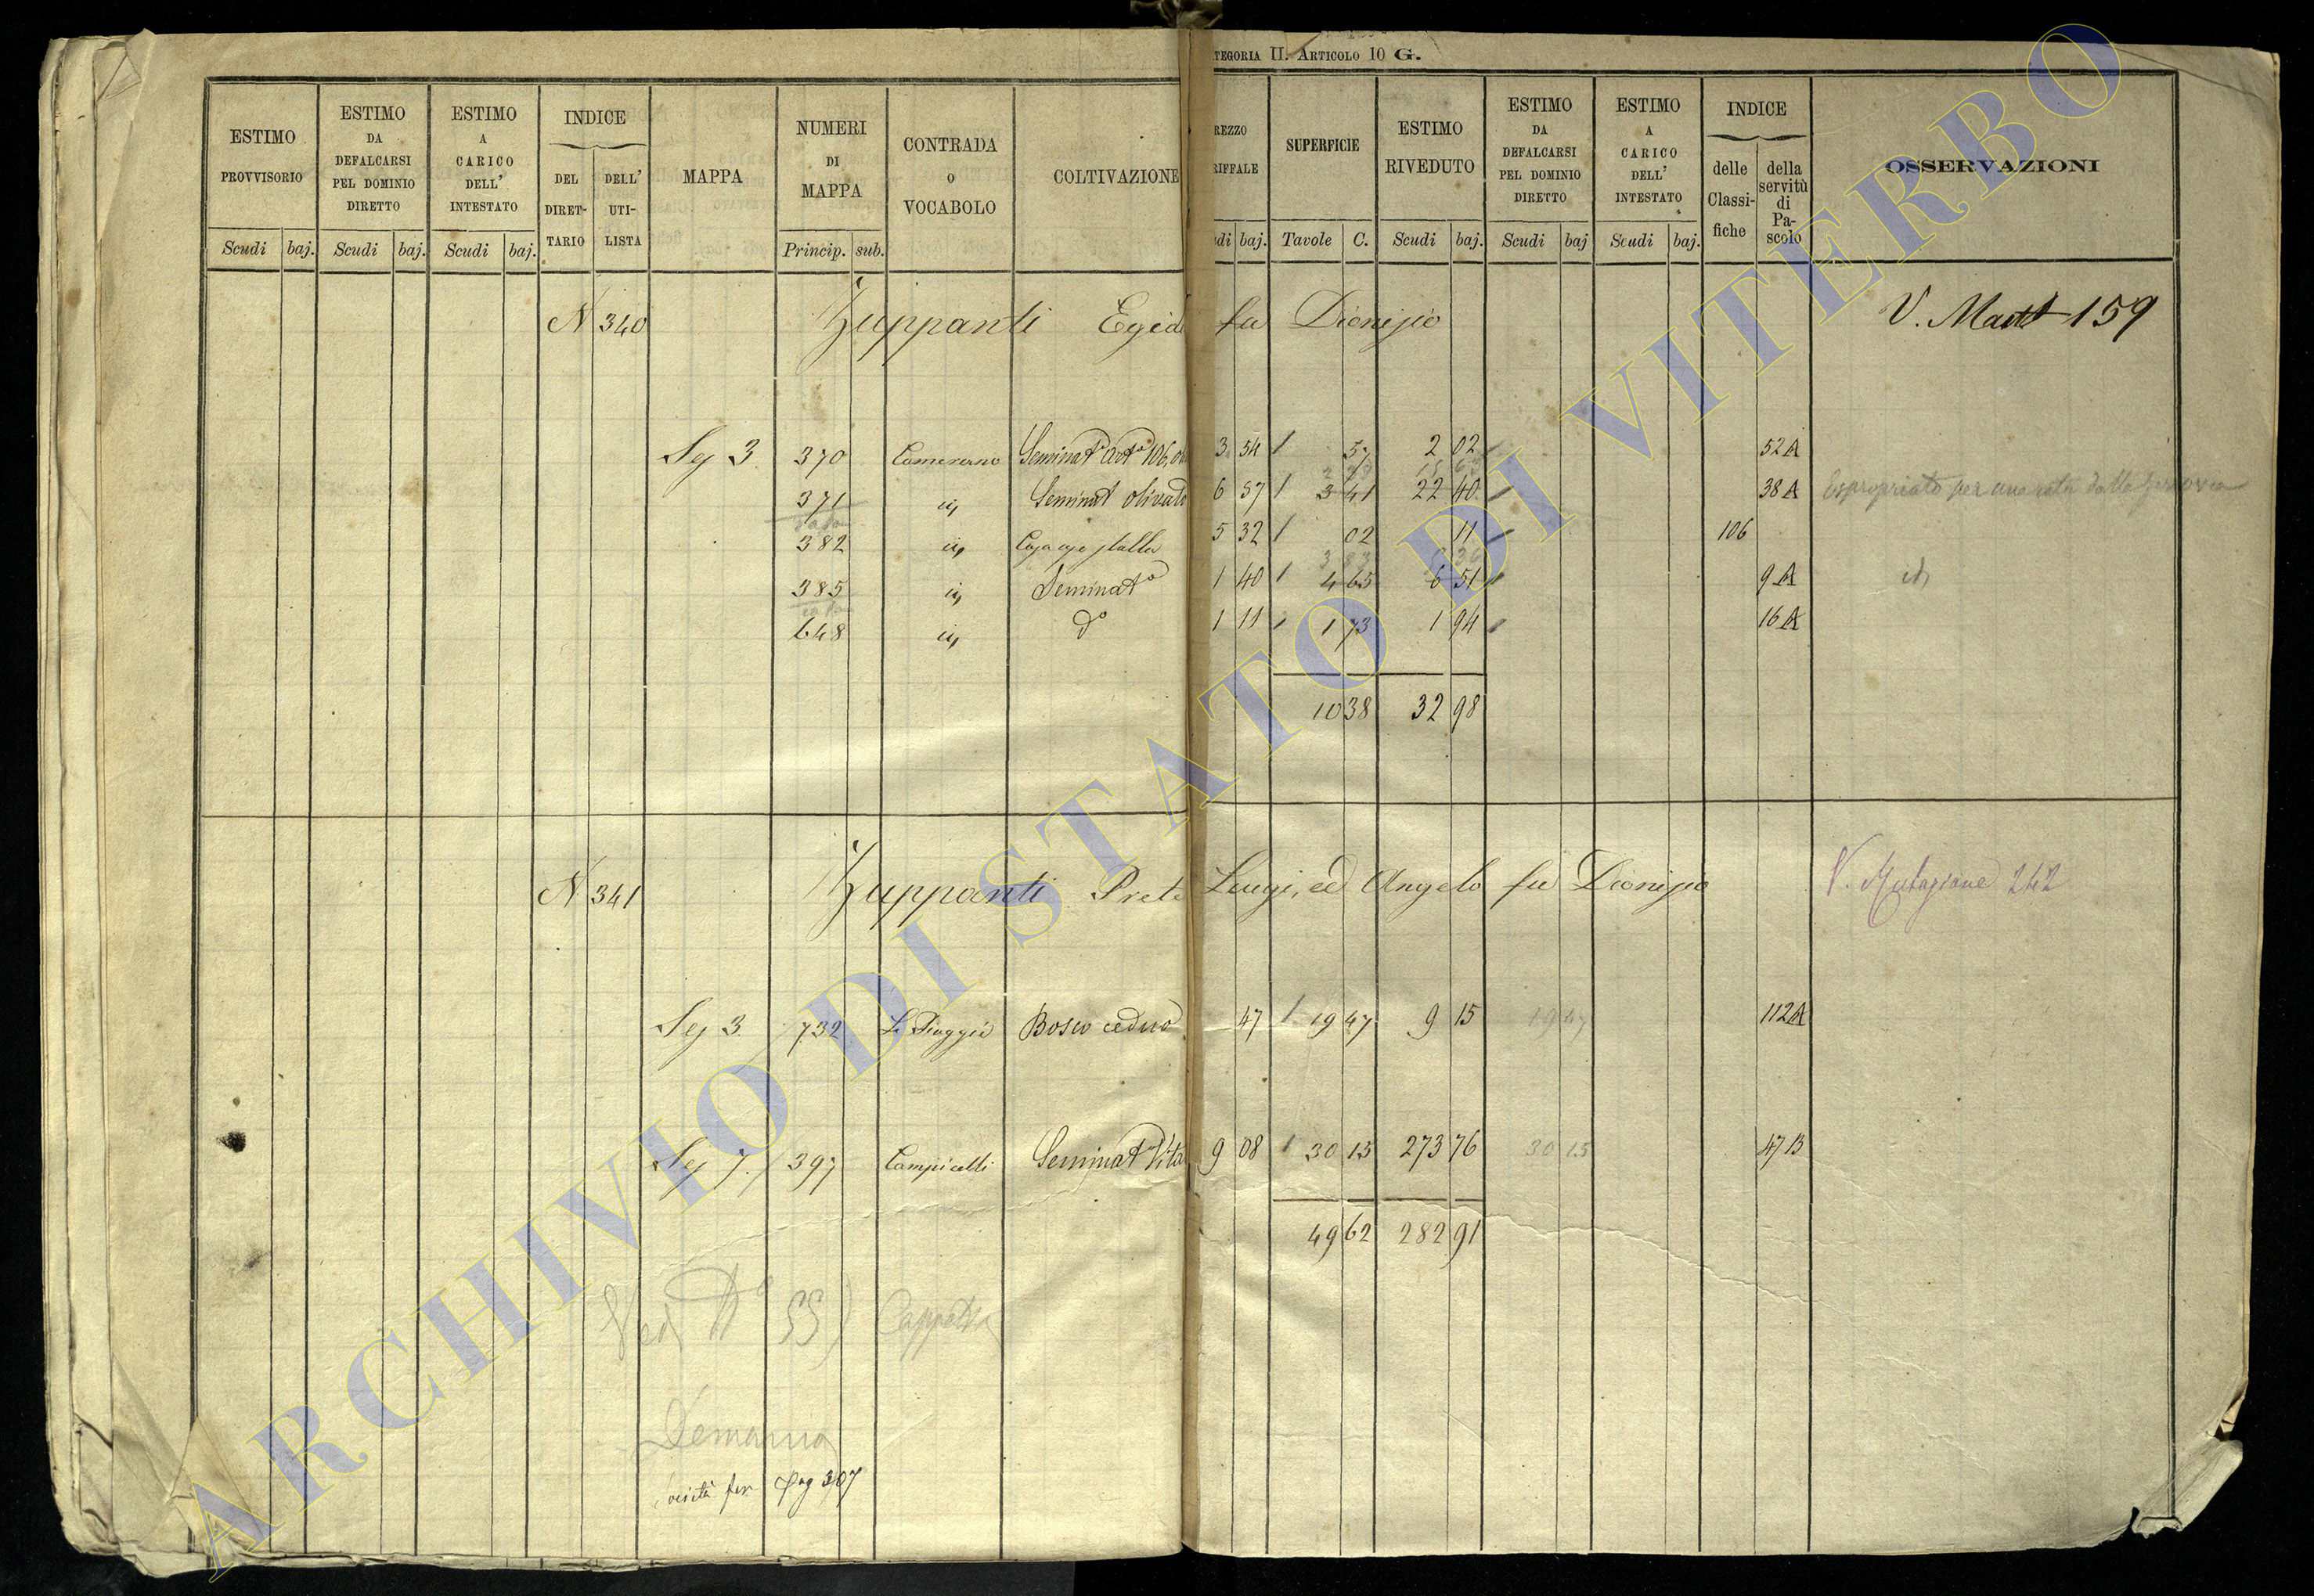 TEGORIA II. ARTICOLO 10 G.
ESTIMO PROVVISORIO
ESTIMO DA DEFALCARSI PEL DOMINIO DIRETTO
ESTIMO A CARICO DELL' INTESTATO
INDICE
DEL DIRET-TARIO
DELL' UTI-LISTA
MAPPA
NUMERI DI MAPPA
CONTRADA O VOCABOLO
COLTIVAZIONE
REZZO RIFFALE
SUPERFICIE
ESTIMO RIVEDUTO
ESTIMO DA DEFALCARSI PEL DOMINIO DIRETTO
ESTIMO A CARICO DELL' INTESTATO
INDICE
delle Classi-fiche
della servitù di Pa-scolo
OSSERVAZIONI
Scudi baj. Scudi baj. Scudi baj. Princip. sub. di baj. Tavole C. Scudi baj. Scudi baj Scudi baj.
N 340 Zuppanti Egid fu Dionisio V. 159
Sez 3. 370 Camerano Seminat 106, 3 54 57 2 02 52 A
371 id Seminat olivato 6 57 3 41 22 40 38 A Espropriato per una rata dalla
382 id Casa stalla 5 32 02 11 106
385 id Seminato 1 40 4 65 6 51 9 A id
648 id do 1 11 1 73 1 94 16 A
10 38 32 98
N 341 Zuppanti Prete Luigi, ed Angelo fu Dionisio V. Mutazione 242
Sez 3. 732 Piaggie Bosco ceduo 47 19 47 9 15 19 47 112 A
Sez 7. 397 Campicelli Seminat Vita 9 08 30 15 273 76 30 15 47 B
49 62 282 91
Vedi
Demanio
per Pag 307
ARCHIVIO DI STATO DI VITERBO